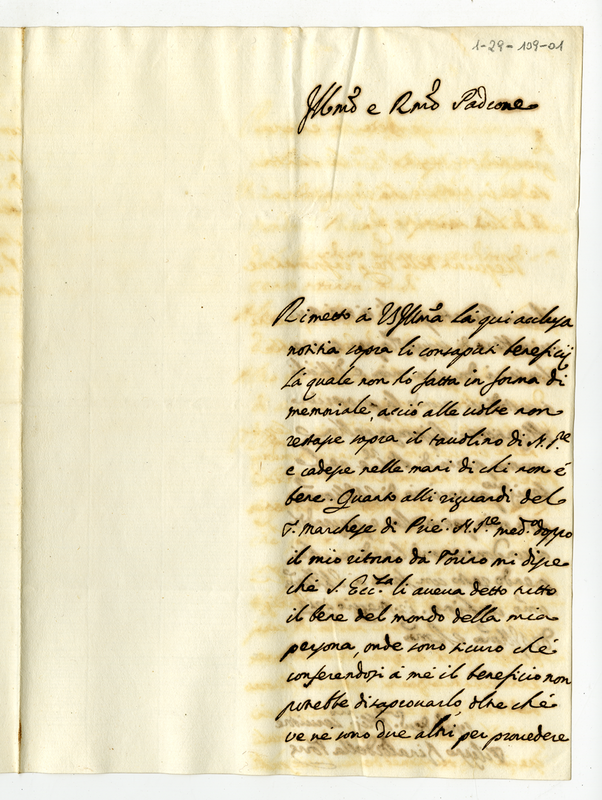 1-29-109-01
Illmo e Rmo Padrone
Rimetto à VSIllma la qui acclusa
notitia sopra li consaputi beneficij
la quale non hò fatta in forma di
memoriale, acciò alle volte non
restasse sopra il tavolino di N. Sre
e cadesse nelle mani di chi non è
bene. Quanto alli riguardi del
S. Marchese di Prié. N. Sre medo doppo
il mio ritorno da Torino mi disse
che S. Ecc.za li aveva detto tutto
il bene del mondo della mia
persona, onde sono sicuro che
conferendosi à me il beneficio non
potrebbe disaprovarlo, oltre che
ve ne sono due altri per provedere